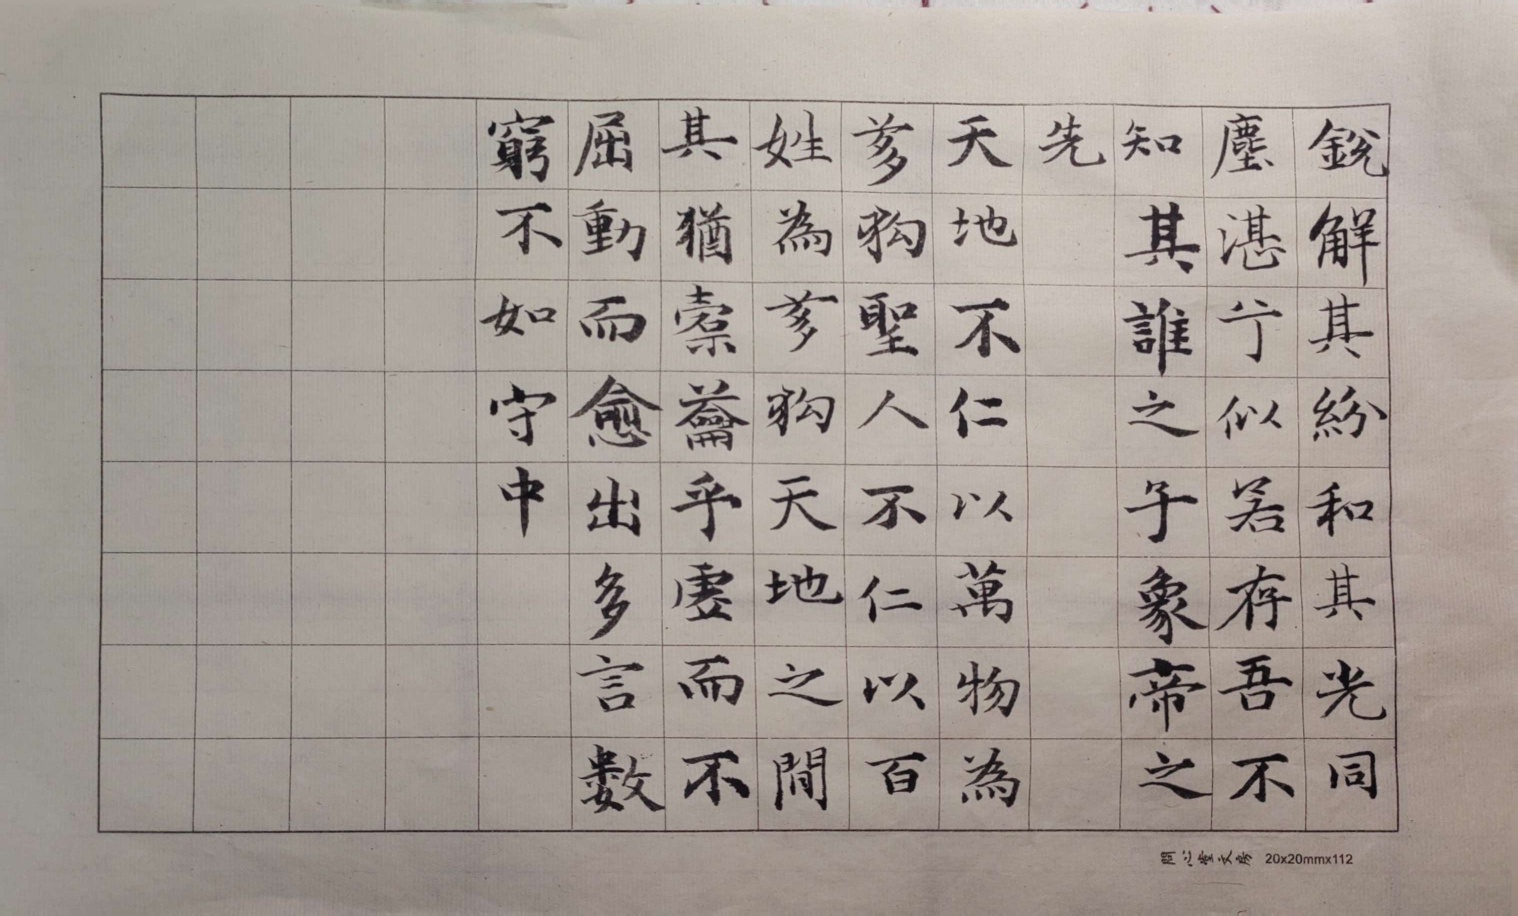 銳解其紛和其光同
塵湛兮似若存吾不
知其誰之子象帝之
先
天地不仁以萬物為
芻狗聖人不仁以百
姓為芻狗天地之間
其猶橐籥乎虛而不
屈動而愈出多言數
窮不如守中
問心堂文房 20x20mmx112